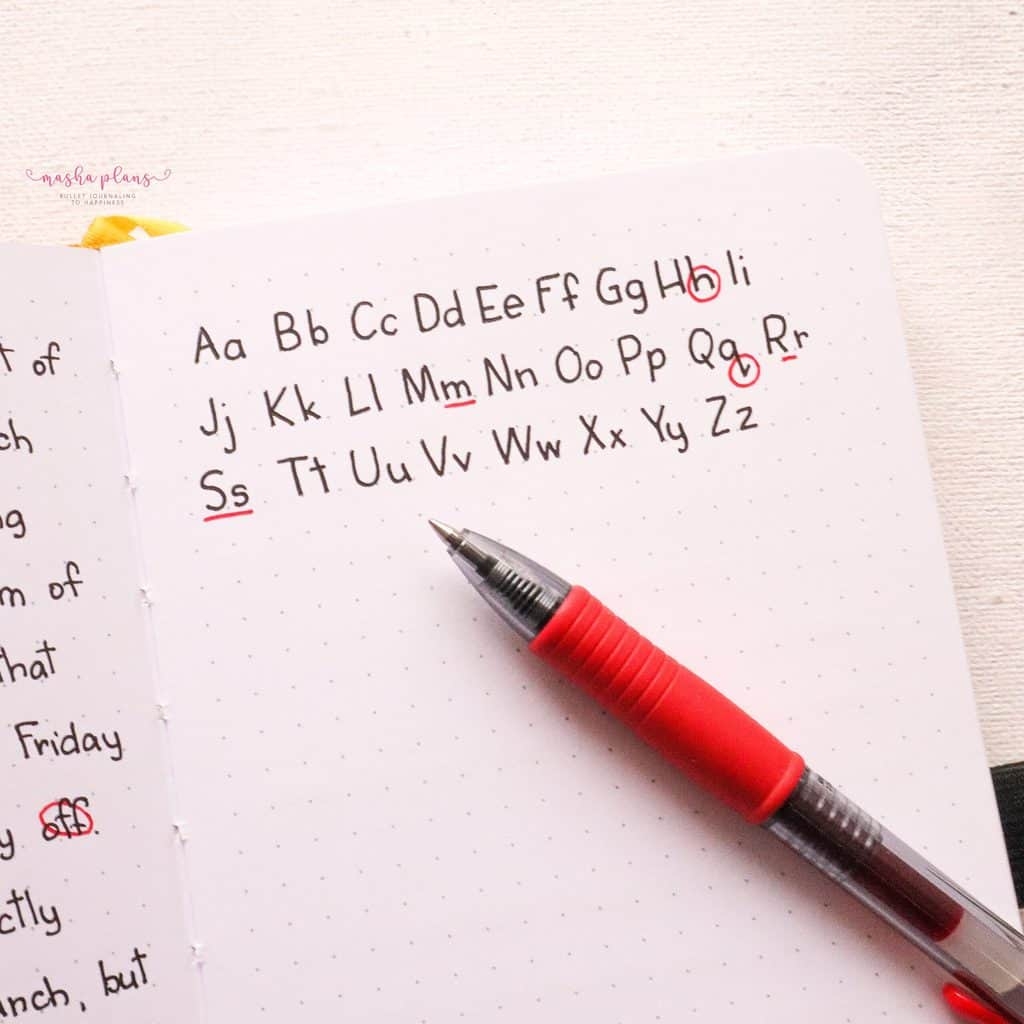 masha plans
BULLET JOURNALING
TO HAPPINESS
of
Friday
off.
but
Aa Bb Cc Dd Ee Ff Gg Hh Ii
Jj Kk Ll Mm Nn Oo Pp Qq Rr
Ss Tt Uu Vv Ww Xx Yy Zz